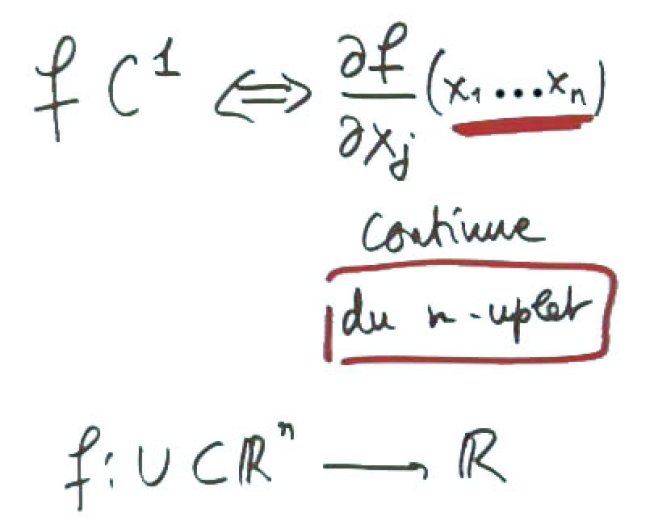 f C¹ ⟺ ∂f/∂xⱼ (x₁ ... xₙ)
continue
du n-uplet
f : U ⊂ ℝⁿ ⟶ ℝ